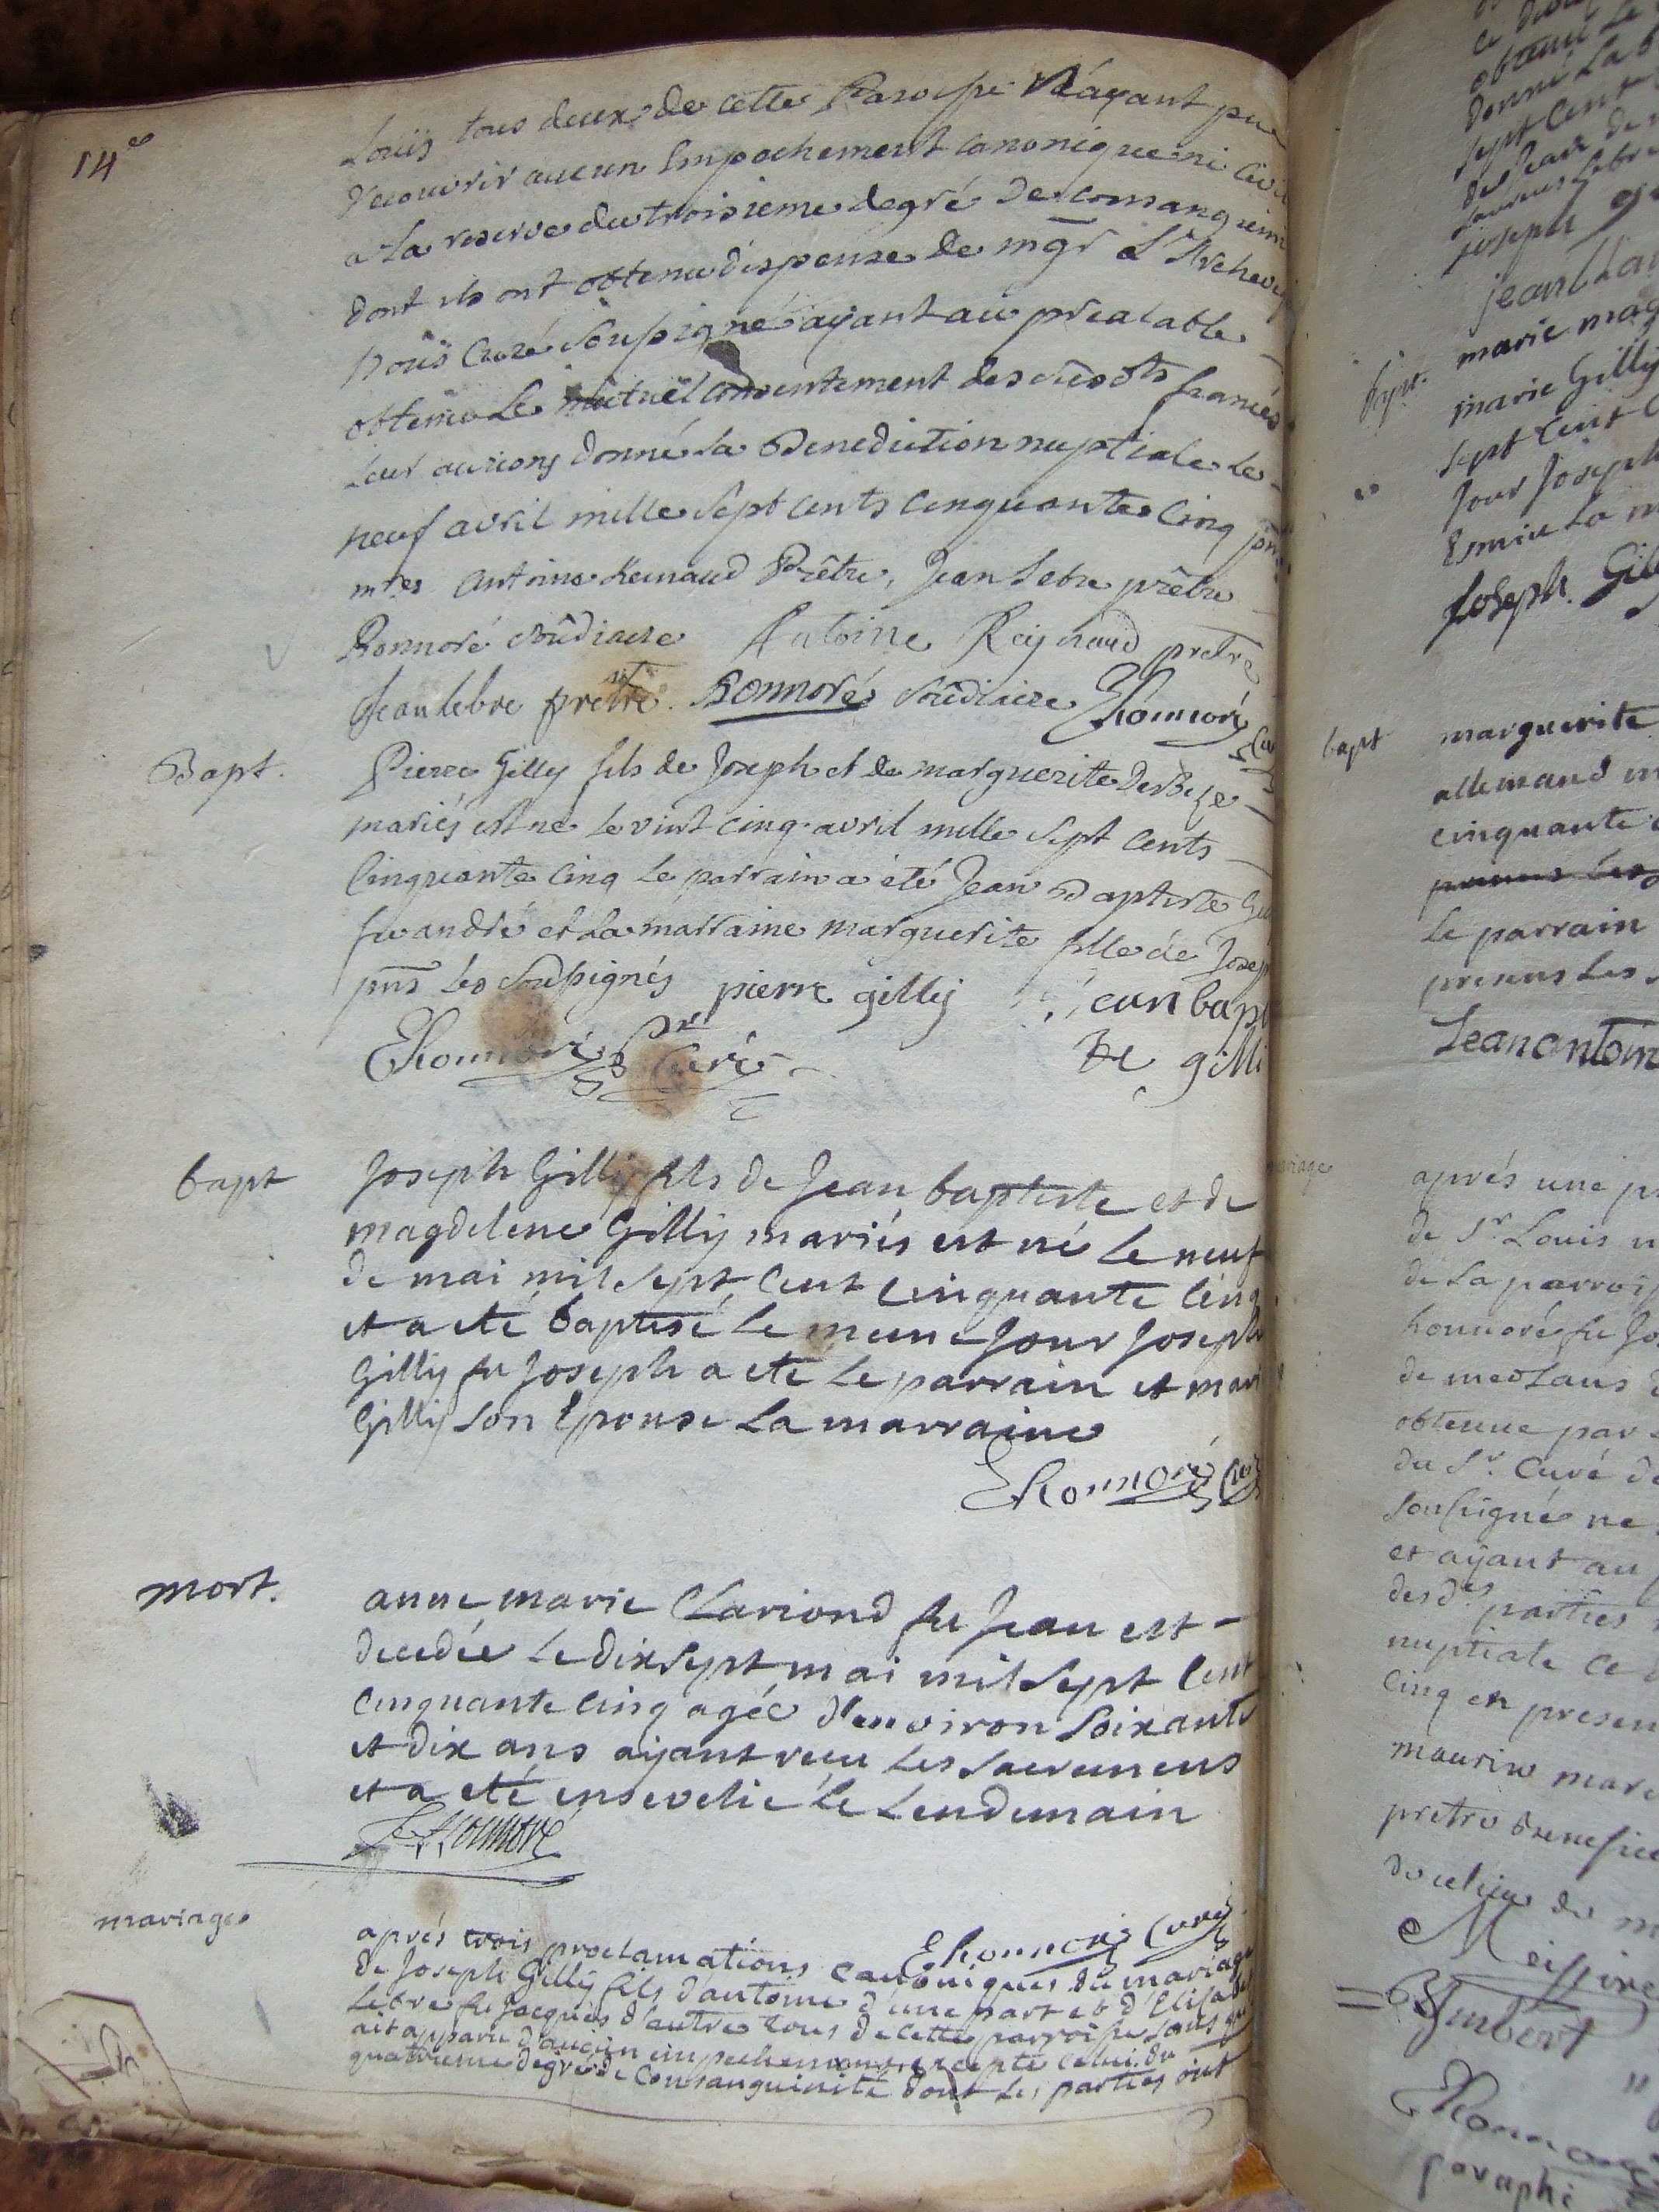 14e
Louis tous deux de cette Paroisse N'ayant pu
decouvrir aucun Empechement canonique ni civil
a La reserve du troisieme degré de consanguini
dont ils ont obtenu dispense de mgr L'Archeveq
Nous Curé soussigné ayant au prealable
obtenu Le mutuel consentement des susdts fiancés
Leur aurions donné la Benediction nuptiale Le
neuf avril mille sept cents cinquante cinq
mres Antoine Renaud Prêtre, Jean Lebre prêtre
Honnoré soudiacre Antoine Reynaud pretre
Jean lebre pretre Honnoré soudiacre Honnoré
Bapt.
Pierre Gilly fils de Joseph et de marguerite
mariés est né le vint cinq avril mille sept cents
Cinquante Cinq Le parrain a été Jean Baptiste
fu andré et la marraine marguerite fille de Josep
pns Les soussignés pierre gilly jean bapt
te gilli
Honnoré Pr Curé
bapt
Joseph Gilly fils de Jean baptiste et de
magdelene Gilly mariés est né Le neuf
de mai mil sept cent cinquante cinq
et a eté baptisé Le meme Jour Joseph
Gilly fu Joseph a eté Le parrain et mari
Gilly son Epouse La marraine
EHonnoré Curé
mort.
anne marie Clariond fu Jean est
decedée Le dix sept mai mil sept cent
Cinquante Cinq agée d'environ soixante
et dix ans ayant recu les sacremens
et a eté ensevelie Le Lendemain
Honnoré
EHonnoré Curé
mariage
aprés trois proclamations canoniques du mariage
de Joseph Gilly fils d'antoine d'une part et d'Elisabet
Lebre fu Jacques d'autre tous de cette parroisse sans que
ait apparu d'aucun empechement excepté celui du
quatrieme degré de Consanguinité dont les parties ont
joseph
marie mag
bapt.
marie Gilly
sept cent
Jour Joseph
Joseph. Gil
bapt
marguerite
allemand
cinquante
Le parrain
presens les
Jeanantoin
mariage
aprés une
de Sr Louis
de la parrois
honnoré fu Jo
de meolans
obtenue par
du Sr. Curé de
soussigné ne
et ayant au
des des parties
nuptiale ce
cinq en presen
maurin marc
pretre benefice
du m
Meissire
Imbert
Honnoré
paraphé